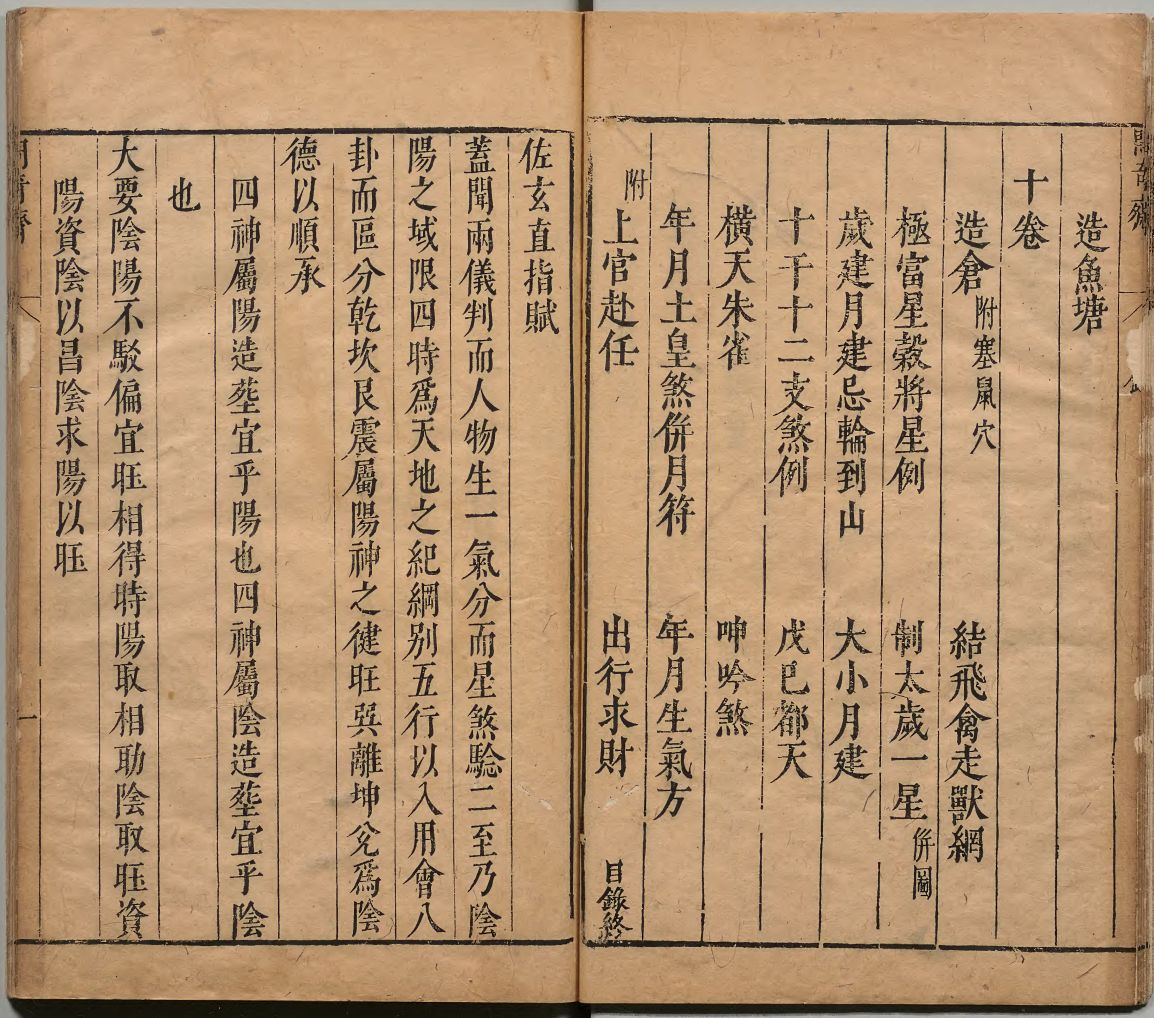 造魚塘
十卷
造倉 附塞鼠穴 結飛禽走獸網
極富星穀將星例 制太歲一星 併圖
歲建月建忌輪到山 大小月建
十干十二支煞例 戊巳都天
橫天朱雀 呻吟煞
年月土皇煞併月符 年月生氣方
附上官赴任 出行求財 目錄終
佐玄直指賦
蓋聞兩儀判而人物生一氣分而星煞驗二至乃陰
陽之域限四時爲天地之紀綱別五行以入用會八
卦而區分乾坎艮震屬陽神之健旺巽離坤兌爲陰
德以順承
四神屬陽造塟宜乎陽也四神屬陰造塟宜乎陰
也
大要陰陽不駁偏宜旺相得時陽取相助陰取旺資
陽資陰以昌陰求陽以旺
一